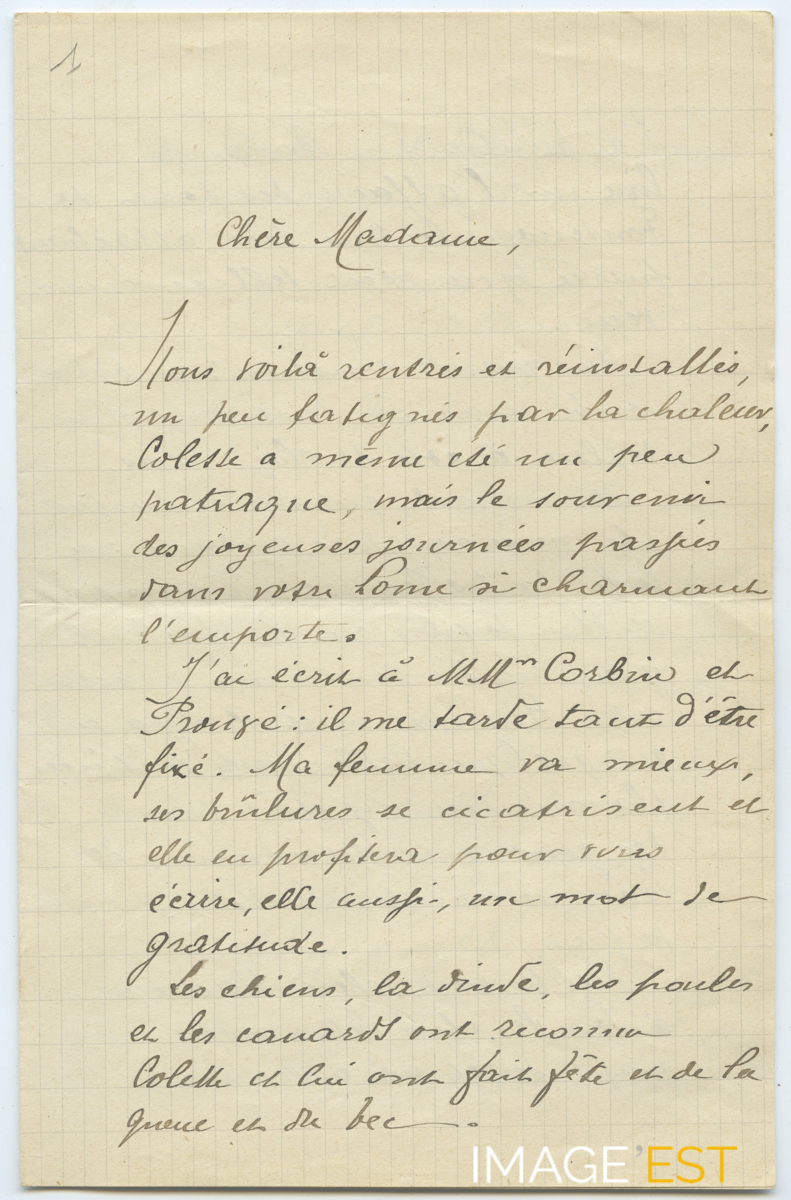 1
Chère Madame,
Nous voilà rentrés et réinstallés,
un peu fatignés par la chaleur,
Colette a même été un peu
patraque, mais le souvenir
des joyeuses journées passées
dans votre home si charmant
l'emporte.
J'ai écrit à MMrs Corbin et
Prouvé : il me tarde tant d'être
fixé. Ma femme va mieux,
ses brûlures se cicatrisent et
elle en profitera pour vous
écrire, elle aussi, un mot de
gratitude.
Les chiens, la dinde, les poules
et les canards ont reconnu
Colette et lui ont fait fête et de la
queue et du bec.
IMAGE'EST